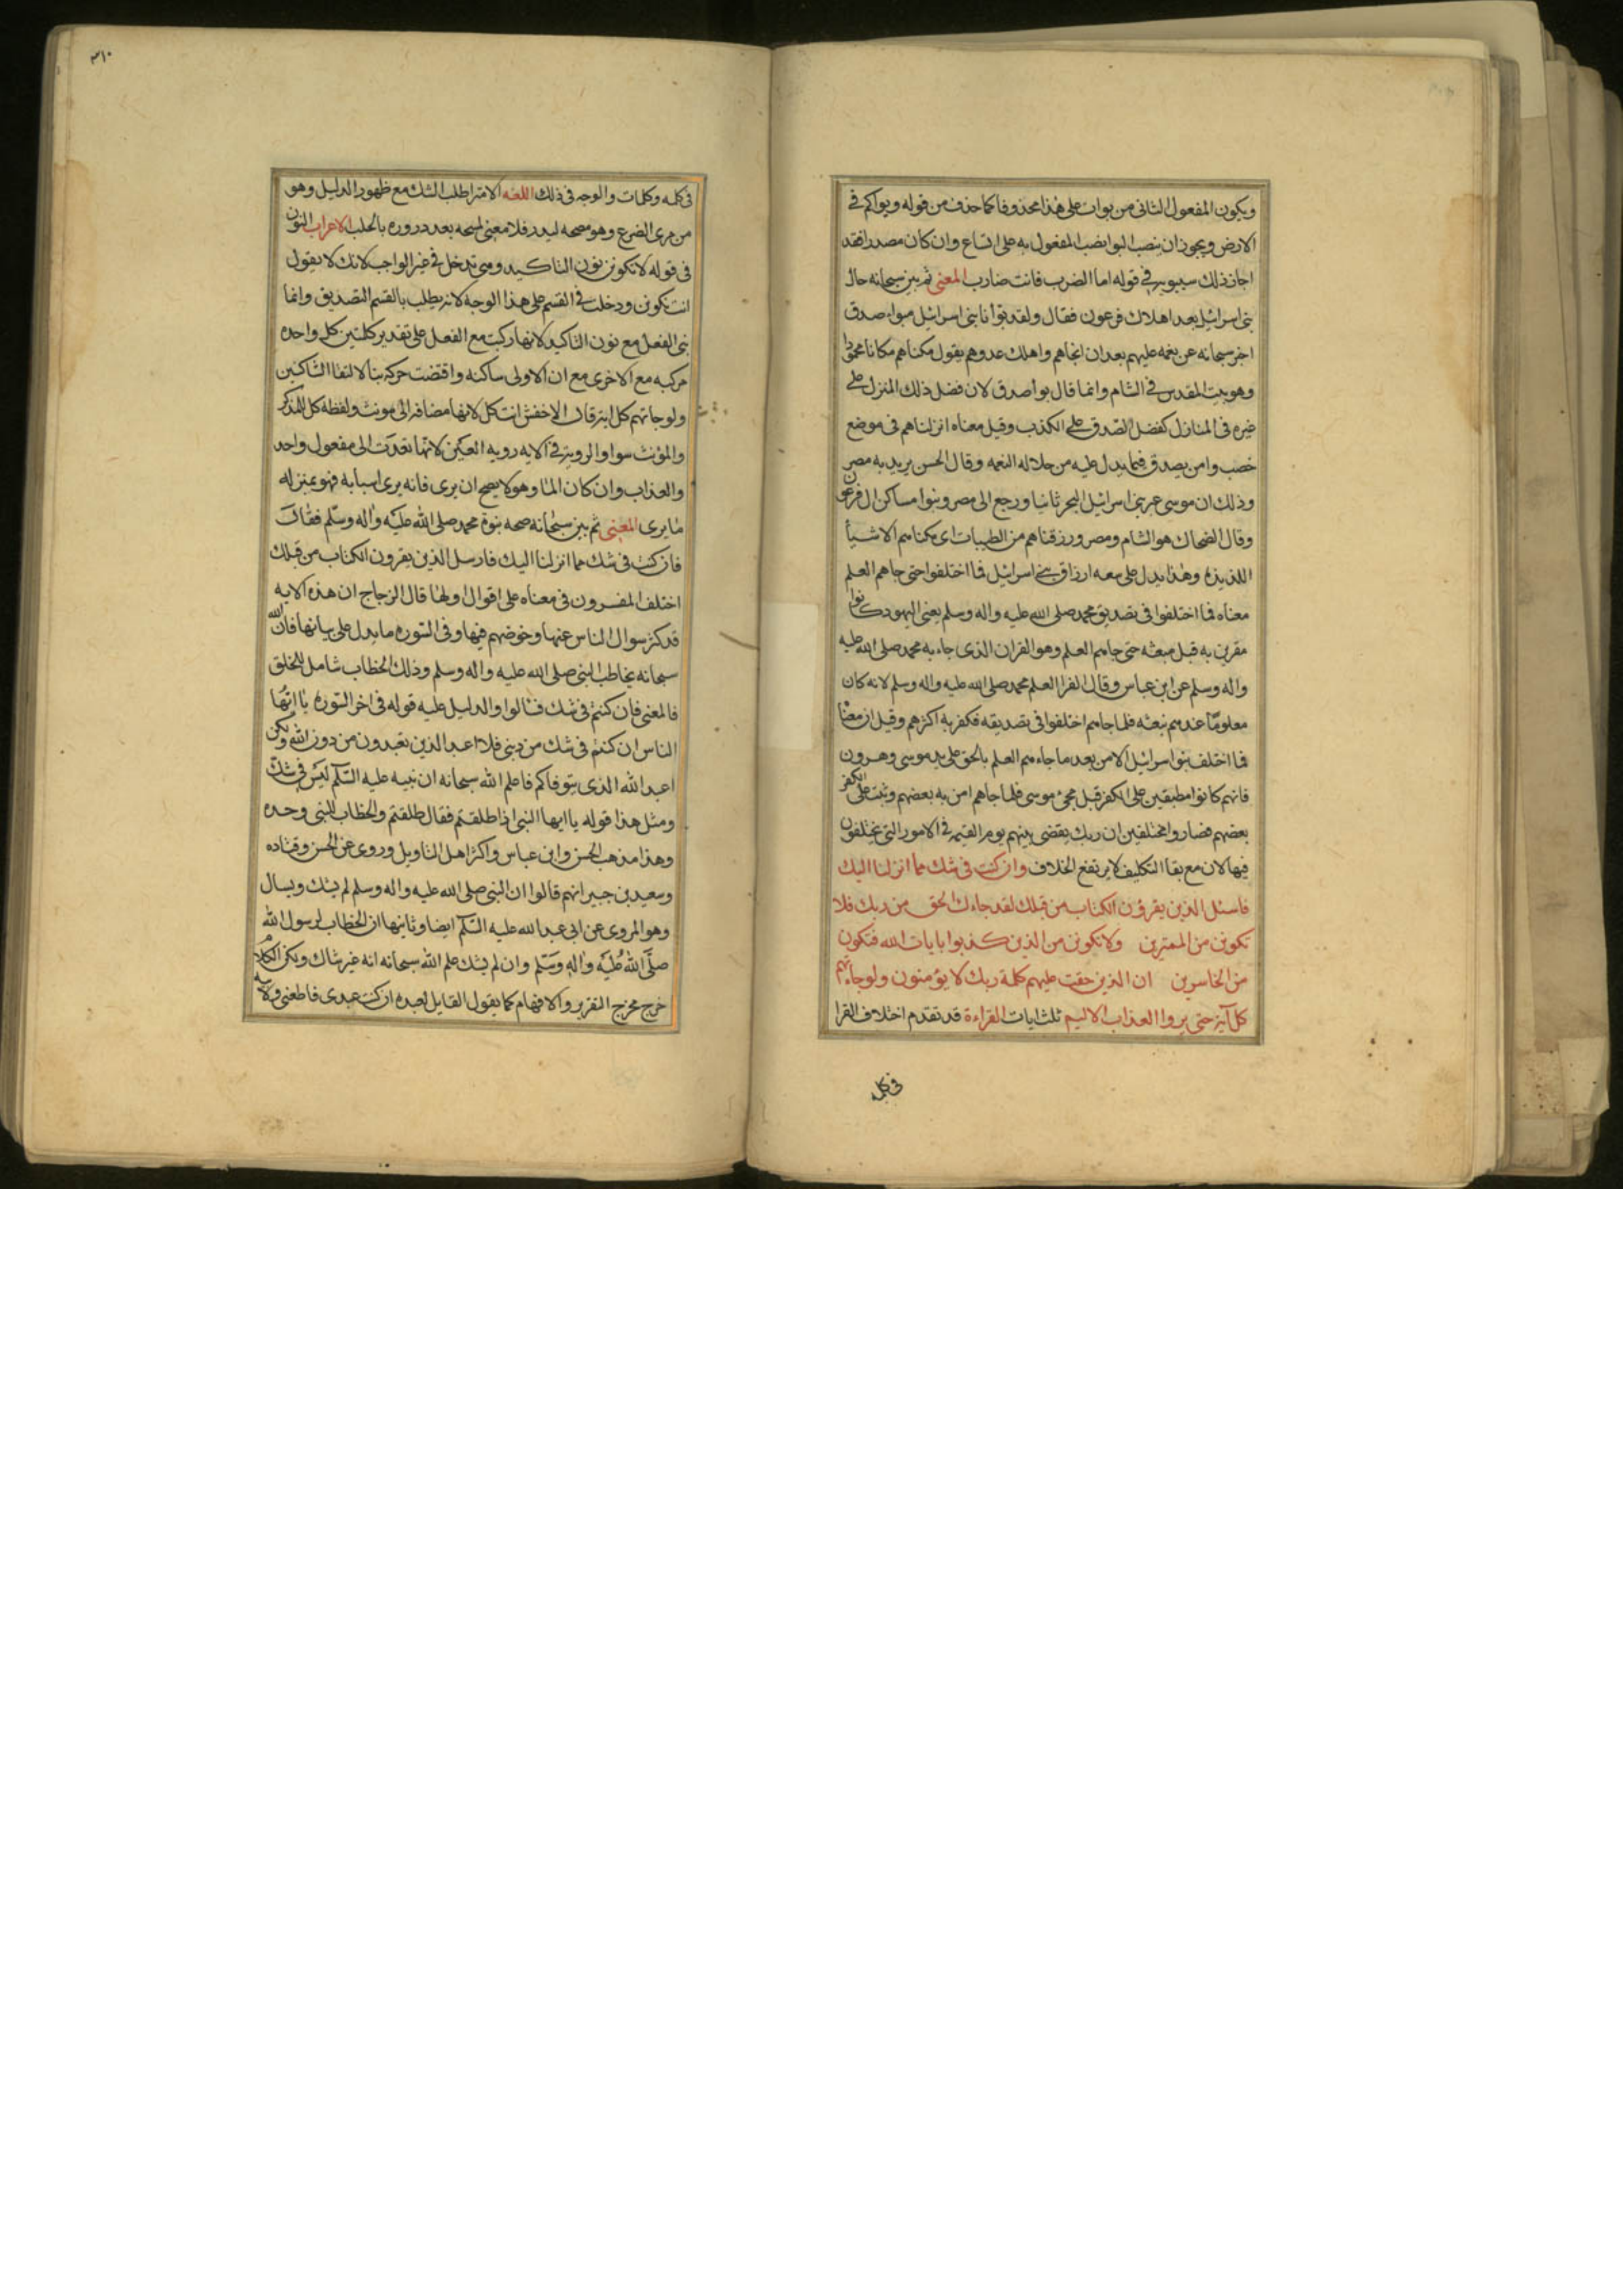 ويكون المفعول الثانى من بوات على هذا محذوفا كما حذف من قوله وبواكم في
الارض ويجوز ان ينصب البوا نصب المفعول به على اتساع وان كان مصدرا فقد
اجاز ذلك سيبويه في قوله اما الضرب فانت ضارب المعنى ثم بين سبحانه حال
بنى اسرائيل بعد اهلاك فرعون فقال ولقد بوأنا بنى اسرائيل مبواء صدق
اخبر سبحانه عن نعمه عليهم بعد ان انجاهم واهلك عدوهم يقول مكناهم مكانا محمودا
وهو بيت المقدس في الشام وانما قال بوأ صدق لان فضل ذلك المنزل على
غيره فى المنازل كفضل الصدق على الكذب وقيل معناه انزلناهم فى موضع
خصب وامن يصدق فيما يدل عليه من جلاله النعمه وقال الحسن يريد به مصر
وذلك ان موسى عبر ببنى اسرائيل البحر ثانيا ورجع الى مصر وبنوا مساكن ال فرعون
وقال الضحاك هو الشام ومصر ورزقناهم من الطيبات اى مكناهم الاشيأ
اللذيذة وهذا يدل على سعه ارزاق بنى اسرائيل فما اختلفوا حتى جاهم العلم
معناه فما اختلفوا فى تصديق محمد صلى الله عليه واله وسلم يعنى اليهود كانوا
مقرين به قبل مبعثه حتى جاءهم العلم وهو القران الذى جاء به محمد صلى الله عليه
واله وسلم عن ابن عباس وقال الفرا العلم محمد صلى الله عليه واله وسلم لانه كان
معلوما عندهم بنعته فلما جاءهم اختلفوا فى تصديقه فكفر به اكثرهم وقيل ان معناه
فما اختلف بنوا اسرائيل الا من بعد ما جاءهم العلم بالحق على يد موسى وهرون
فانهم كانوا مطبقين على الكفر قبل مجئ موسى فلما جاهم امن به بعضهم وثبت على الكفر
بعضهم فصاروا مختلفين ان ربك يقضى بينهم يوم القيمه فى الامور التى يختلفون
فيها لان مع بقا التكليف لا يرتفع الخلاف وان كنت فى شك مما انزلنا اليك
فاسئل الذين يقرؤن الكتاب من قبلك لقد جاءك الحق من ربك فلا
تكونن من الممترين ولا تكونن من الذين كذبوا بايات الله فتكون
من الخاسرين ان الذين حقت عليهم كلمة ربك لا يؤمنون ولو جاءتهم
كل آية حتى يروا العذاب الاليم ثلث ايات القراءة قد تقدم اختلاف القرا
فى كلمه
٣١٠
فى كلمه وكلمات والوجه فى ذلك اللغه الامترا طلب الشك مع ظهور الدليل وهو
من مرى الضرع وهو مسحه ليدر فلا معنى لمسحه بعد دروره بالحلب الاعراب النون
فى قوله لا تكونن نون التاكيد وهى تدخل فى غير الواجب لانك لا تقول
انت تكونن ودخلت فى القسم على هذا الوجه لانه يطلب بالقسم التصديق وانما
بنى الفعل مع نون التاكيد لانها ركبت مع الفعل على تقدير كلمتين كل واحده
مركبه مع الاخرى مع ان الاولى ساكنه واقتضت حركه بنا لالتقا الساكنين
ولو جاتهم كل ايه قال الاخفش انث كل لانها مضافه الى مونث ولفظه كل للمذكر
والمؤنث سوا والرويه فى الايه رويه العين لانها تعدت الى مفعول واحد
والعذاب وان كان الما وهو لا يصح ان يرى فانه يرى اسبابه فهو بمنزله
ما يرى المعنى ثم بين سبحانه صحه نبوة محمد صلى الله عليه واله وسلم فقال
فان كنت فى شك مما انزلنا اليك فاسل الذين يقرون الكتاب من قبلك
اختلف المفسرون فى معناه على اقوال اولها قال الزجاج ان هذه الايه
قد كثر سوال الناس عنها وخوضهم فيها وفى السوره ما يدل على بيانها فان الله
سبحانه يخاطب النبى صلى الله عليه واله وسلم وذلك الخطاب شامل للخلق
فالمعنى فان كنتم فى شك فسالوا والدليل عليه قوله فى اخر السوره يا ايها
الناس ان كنتم فى شك من دينى فلا اعبد الذين تعبدون من دون الله ولكن
اعبد الله الذى يتوفاكم فاعلم الله سبحانه ان نبيه عليه السلم ليس فى شك
ومثل هذا قوله يا ايها النبى اذا طلقتم فقال طلقتم والخطاب للنبى وحده
وهذا مذهب الحسن وابن عباس واكثر اهل التاويل وروى عن الحسن وقتاده
وسعيد بن جبير انهم قالوا ان النبى صلى الله عليه واله وسلم لم يشك ويسال
وهو المروى عن ابى عبد الله عليه السلم ايضا وثانيها ان الخطاب لرسول الله
صلى الله عليه واله وسلم وان لم يشك علم الله سبحانه انه غير شاك ولكن الكلام
خرج مخرج التقرير والافهام كما يقول القايل لعبده ان كنت عبدى فاطعنى ولابيه